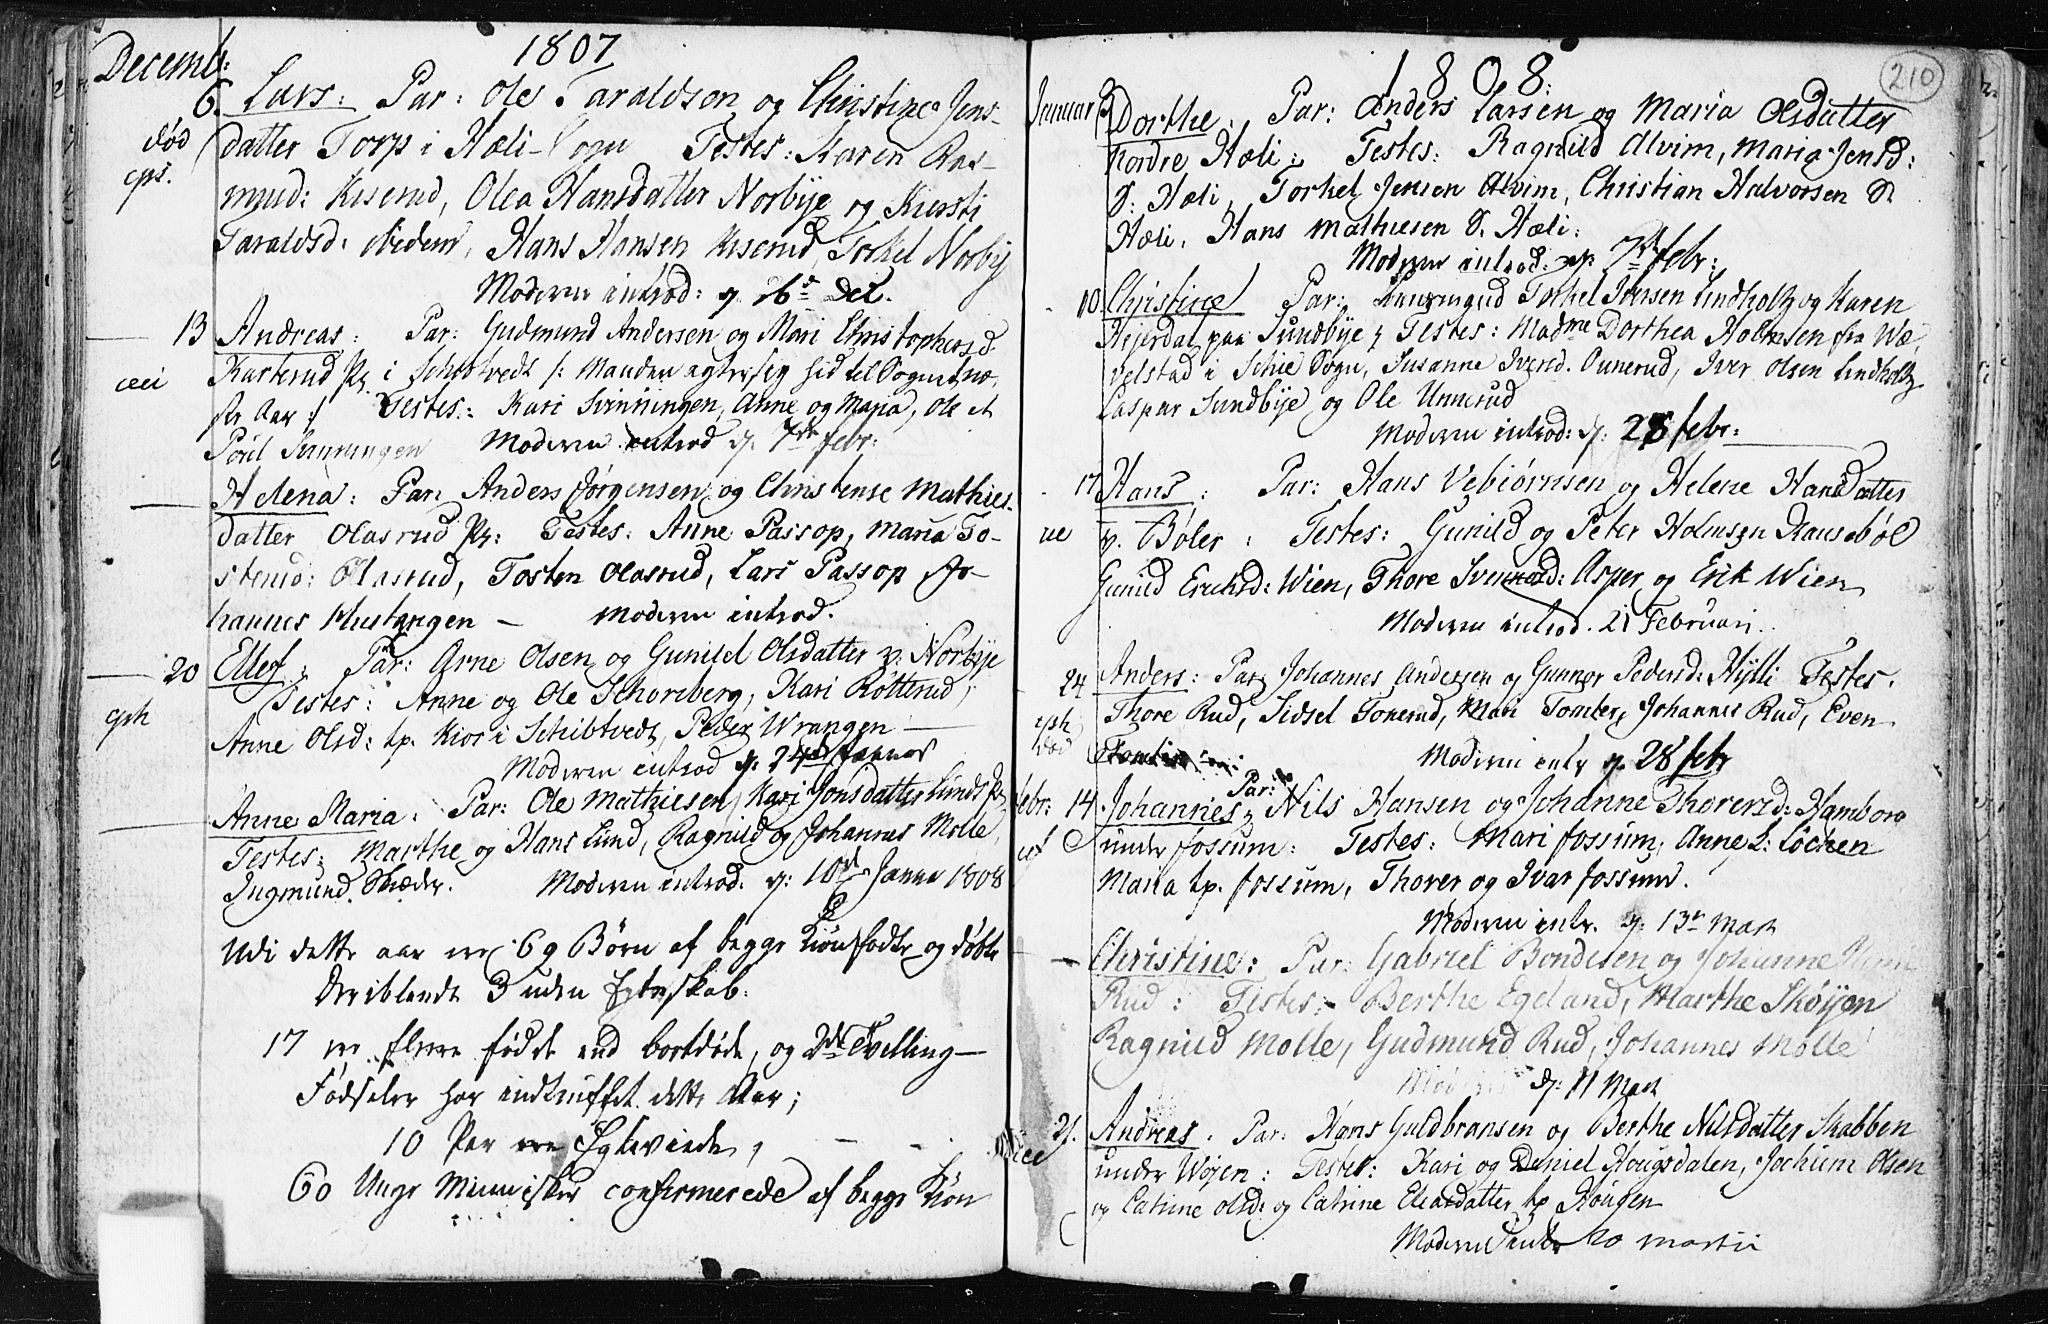 1807
Decemb:
6. Lars: Par: Ole Taraldson og Christine Jens-
død datter Torp i Hæli-Sogn Testes: Karen Ras-
musd: Kiserud, Olea Hansdatter Norbye og Kiersti
Taraldsd: ibidem, Hans Hansen Kiserud, Torkel Norbye
Moderen introd: d. 26 Dec.
13 Andreas: Par: Gudmund Andersen og Mari Christophersd.
Karterud Pl. i Schibtvedt /: Manden agter sig hid til Sognet næ-
ste Aar :/ Testes: Kari Svinningen, Anne og Maria, Ole et
Poul Svinningen Moderen introd d. 7de febr:
Helena: Par: Anders Jørgensen og Christense Mathies-
datter Olasrud Pl: Testes: Anne Passop, Maria To-
stensd: Olasrud, Tosten Olasrud, Lars Passop Jo-
hannes Mustangen — Moderen introd.
20 Ellef: Par: Arne Olsen og Gunild Olsdatter v: Norbye
Testes: Anne og Ole Thoreberg, Kari Rotterud,
Anne Olsd: tp. Kios i Schibtvedt, Peder Wrangen
Moderen introd d. 24de Januar
Anne Maria. Par: Ole Mathiesen, Kari Jonsdatter Lunds Pl.
Testes: Marthe og Hans Lund, Ragnild og Johannes Molle,
Ingmund Skæder. Moderen introd: d: 10de Janua 1808
Udi dette aar er 69 Børn af begge Kiøn fødte og døbte
Deriblandt 3 uden Egteskab.
17 er flere fødde end bortdøde, og 2de Tvilling-
Fødseler har indtruffet dette Aar;
10 Par ere Egteviede,
60 Unge Mennisker confirmerede af begge Kiøn
1808.
210
Januar 3 Dorthe. Par: Anders Larsen og Maria Olsdatter
nordre Hæli: Testes: Ragnild Alvim, Maria Jensd:
S: Hæli, Torkel Jensen Alvim, Christian Halvorsen S:
Hæli, Hans Mathiesen S. Hæli:
Moderen introd: d: 7de febr:
10 Christine Par: Torkel Jensen Lindholt og Karen
Hejerdal paa Sundbye; Testes: Madme Dorthea Holmsen fra Wæ-
velstad i Schie Sogn, Susanne Iversd. Ounerud, Iver Olsen Lindholt
Caspar Sundbye og Ole Unnerud
Moderen introd: d: 28 febr:
17 Hans: Par: Hans Vebiørnsen og Helene Hansdatter
v. Bøler: Testes: Gunild og Peter Holmsen Kausebøl
Gunild Erichsd: Wien, Thore Svensrud: Asper og Erik Wien
Moderen introd. 21 Februari.
24 Anders: Par: Johannes Andersen og Gunnor Pedersd: Hylli Testes.
Thore Rud, Sidsel Tonerud, Mari Tomter, Johannes Rud, Even
død Tomter
Moderen intr d. 28 febr
Febr: 14 Johannes; Par: Nils Hansen og Johanne Thorersd: Hamborg
under Fossum: Testes: Mari Fossum, Anne L: Løcken
Maria tp. Fossum, Thorer og Ivar Fossum.
Moderen intr. d. 13de Mart
Christine: Par: Gabriel Bondesen og Johanne
Rud: Testes: Berthe Egeland, Marthe Skøyen
Ragnild Molle, Gudmund Rud, Johannes Molle
d: 11 Mart
21. Andreas. Par: Hans Guldbransen og Berthe Nilsdatter Skabben
under Wøyen: Testes: Kari og Daniel Hougsdalen, Jochum Olsen
og Catrine Olsd: og Catrine Eleasdatter tp Skougen
Moderen intr 20 Martii